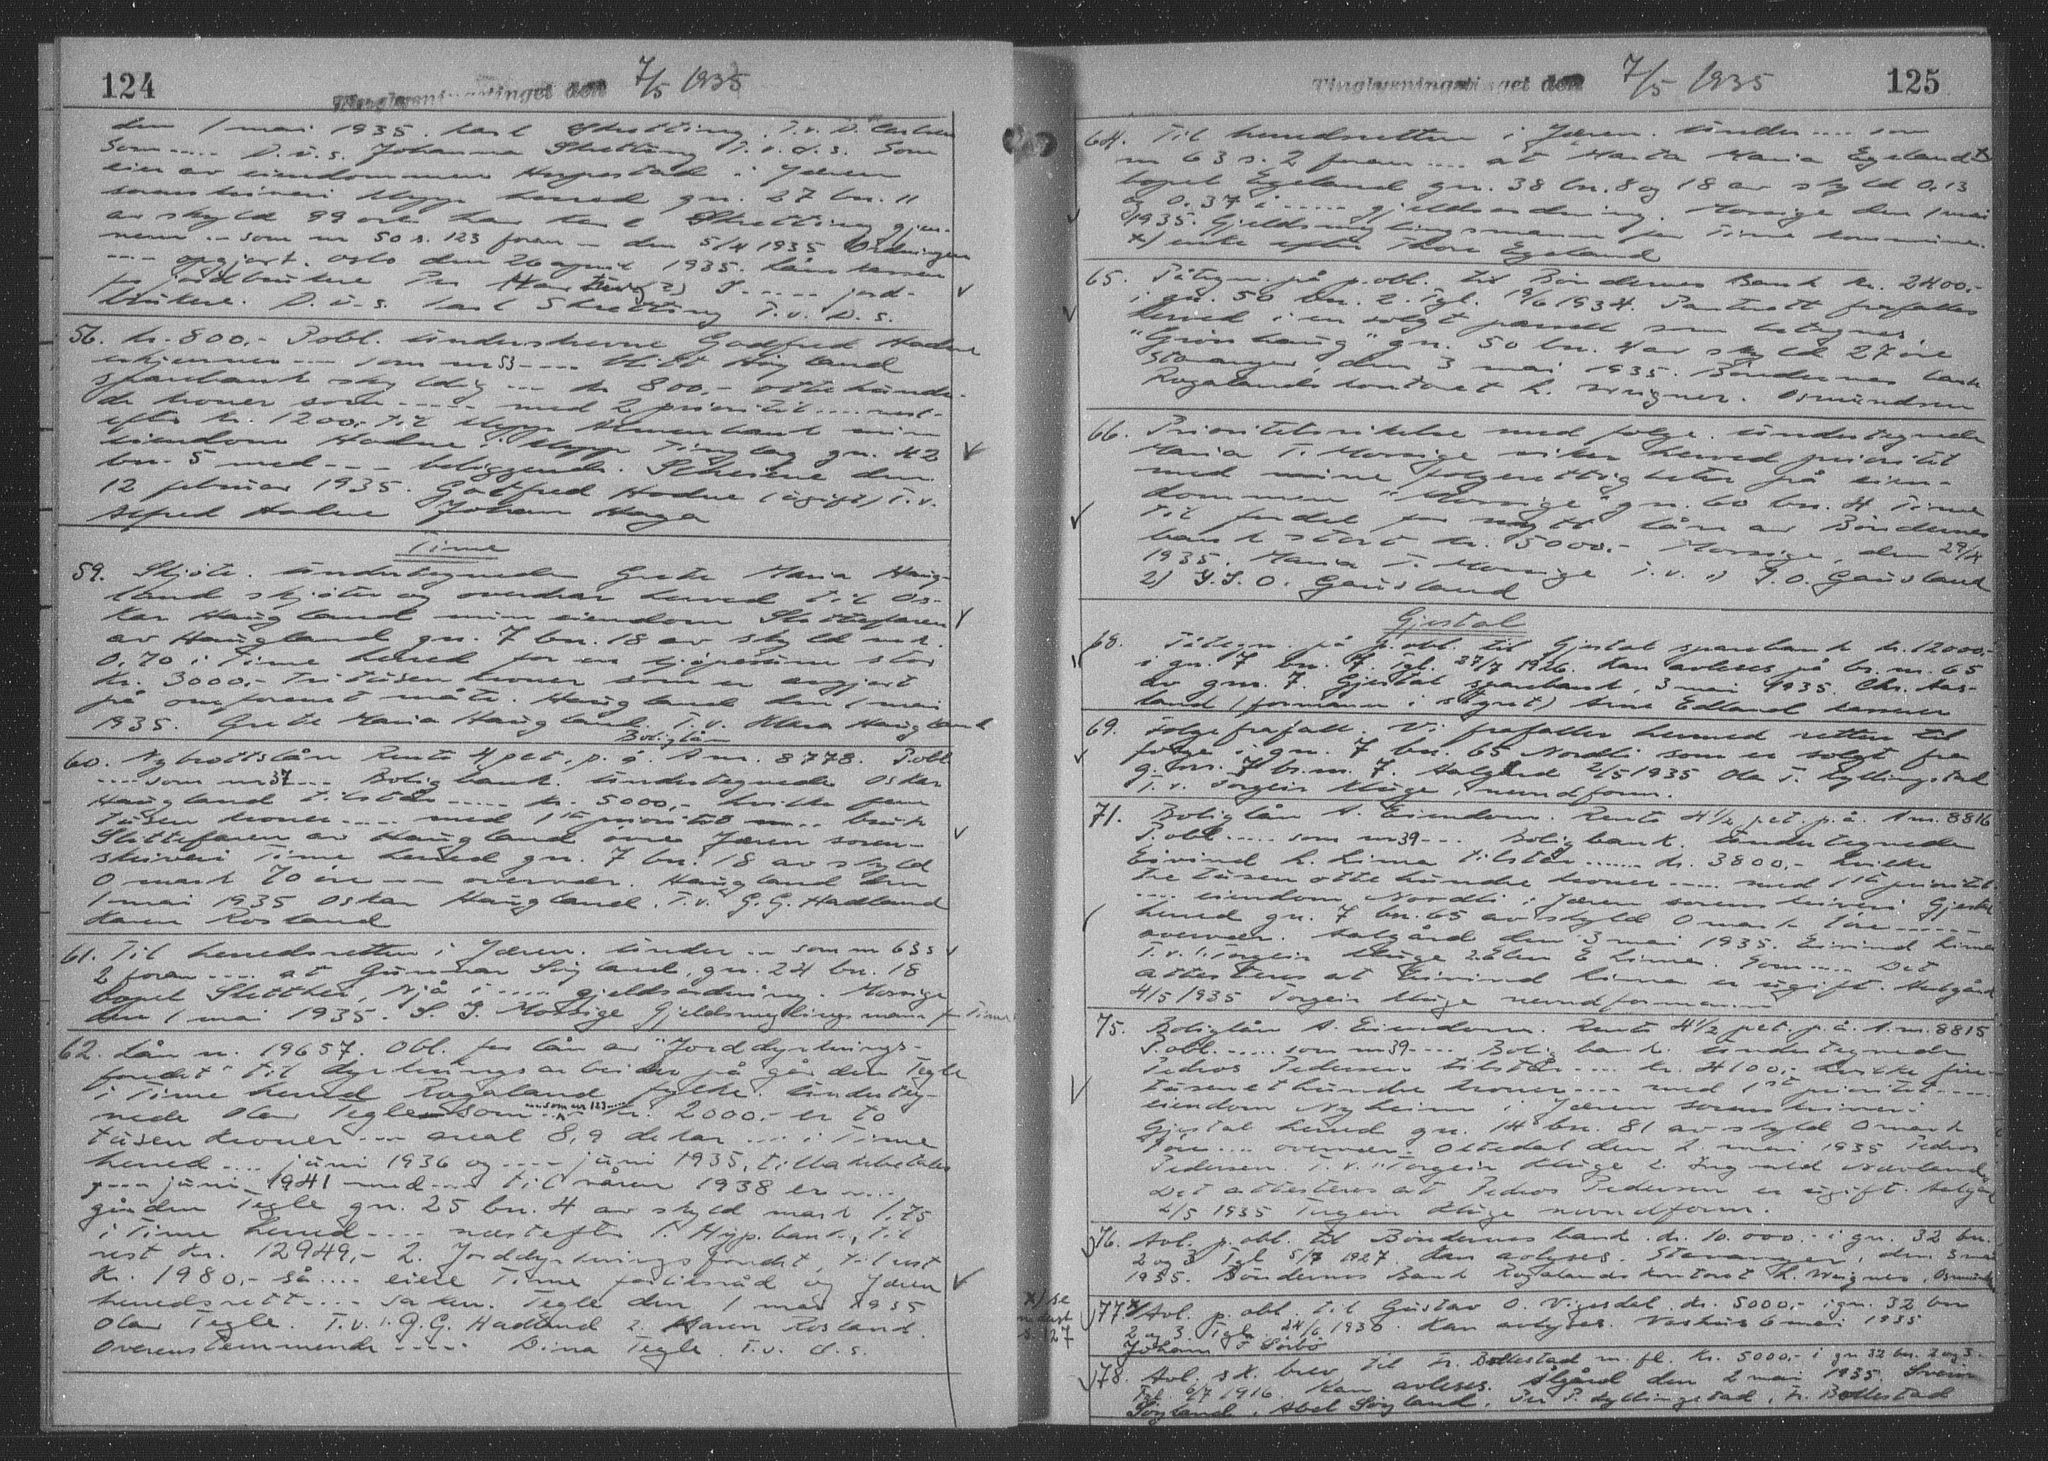 124
Tinglysningstinget den 7/5 1935
den 1 mai 1935. Karl Skretting. T.v. D. Carlsen
Som .... D.u.s. Johanna Skretting T.v. d.s. Som
eier av eiendommen Harpestad i Jæren
sorenskriveri Klepp herred gn. 27 bn. 11
av skyld 99 øre har Karl Skretting gjen-
nem .. som nr 50 s. 123 foran — den 5/4 1935
.... opgjort. Oslo den 26 april 1935. Lånekassen
for jordbrukere Per 2) S ..... jord-
brukere. D.u.s. Karl Skretting T.v. D.s.
56. Kr. 800,- Pobl. Underskrevne Godtfred Hodne
erkjenner --- som nr 53 ---- Klepp
sparebank skyldig --- kr 800,- otte hundre-
de kroner som ----- med 2 prioritet .... næst-
efter kr. 1200,- til Klepp sparebank min
eiendom Hodne i Klepp Tinglag gn. 42
bn. 5 med --- beliggende. den
12 februar 1935. Godtfred Hodne (ugift) T.v.
Alfred Hodne Johan Haga
Time
59. Skjøte. Undertegnede Grete Maria Haug-
land skjøter og overdrar herved til Os-
kar Haugland min eiendom Slettefaren
av Haugland gn. 7 bn. 18 av skyld mk
0,70 i Time herred for en kjøpesum stor
kr. 3000,- tre tusen kroner som er opgjort
på omforenet måte. Haugland den 1 mai
1935. Grete Maria Haugland. T.v. Klara Haugland
Boliglån
60. Nybrottslån Rente 4 pct. p. å. A nr. 8778. Pobl
---- som nr 37 --- Boligbank. Undertegnede Oskar
Haugland tilstår ---- kr. 5000,- hvilke fem
tusen kroner ---- med 1ste prioritet ... bruk
Slettefaren av Haugland øvre Jæren soren-
skriveri Time herred gn. 7 bn. 18 av skyld
0 mark 70 øre --- overvær. Haugland den
1 mai 1935 Oskar Haugland. T.v. G.G. Hadland
Karen Rosland
61. Til herredsretten i Jæren. Under .. som nr 63 s
2 foran .... at Gunnar Sigland, gn. 24 bn. 18
bopel Sletthei, Njå i .... gjeldsordning. Mossige
den 1 mai 1935. S. J. Mossige Gjeldsmeglingsmann for Time
62. Lån nr. 19657. Obl. for lån av "Jorddyrknings-
fondet" til dyrkningsarbeider på gården Tegle
i Time herred Rogaland fylke. Underteg-
nede Olav Tegle som ... som nr 123 ... kr. 2000,- er to
tusen kroner --- areal 8,9 dekar .... i Time
herred .... juni 1936 og .... juni 1935, tilbakebetales
.... juni 1941 med .... til våren 1938 er ....
gården Tegle gn. 25 bn. 4 av skyld mark 1,75
i Time herred .... næstefter 1. Hyp.bank, til
rest kr. 12949,- 2. Jorddyrkningsfondet, til rest
kr. 1980,- så .... eiere Time forliksråd og Jæren
herredsrett .... saken. Tegle den 1 mai 1935
Olav Tegle. T.v. 1. G.G. Hadland 2. Karen Rosland.
Overensstemmende .... Dina Tegle. T.v. d.s.
125
Tinglysningstinget den 7/5 1935
64. Til herredsretten i Jæren. Under .... som
nr 63 s. 2 foran .... at Marta Maria Egeland x)
bopel Egeland gn. 38 bn. 8 og 18 av skyld 0,13
og 0,37 i ..... gjeldsordning. Mossige den 1 mai
1935. Gjeldsmeglingsmannen for Time kommune.
x) enke efter Thore Egeland
65. Påtegn. på p.obl. til Bøndernes Bank kr. 2400,-
i gn. 50 bn. 2. Tgl. 19/6 1934. Panterett frafalles
herved i en solgt parsell som betegnes
"Grønhaug" gn. 50 bn. 4 av skyld 27 øre
Stavanger, den 3 mai 1935. Bøndernes Bank
Rogalandskontoret L. Wiigner. Osmundsen
66. Prioritetsvikelse med følge. Undertegnede
Maria T. Mossige viker herved prioritet
med mine følgerettigheter på eien-
dommen "Mossige" gn. 60 bn. 4 Time
til fordel for nytt lån av Bøndernes
bank stort kr. 5000,- Mossige, den 29/4
1935. Maria T. Mossige T.v. 1) J.O. Gausland
2) J.S.O. Gausland
Gjestal
68. Påtegn. på p.obl. til Gjestal sparebank kr. 12000,-
i gn. 7 bn. 7. Tgl. 27/7 1926. Kan avleses på br. nr. 65
av gnr. 7. Gjestal sparebank, 3 mai 1935. Chr. Aas-
land (formann i styret) Arne Edland kasserer
69. Følgefrafall. Vi frafaller herved retten til
følge i gn. 7 bn. 65 Nordli som er solgt fra
g. nr. 7 br. nr. 7. Aalgård 2/5 1935 Ola T. Kyllingstad
T.v. Torgeir Kluge, nemndform.
71. Boliglån A. Eiendom. Rente 4 1/2 pct. p. å. A nr. 8816
P.obl .... som nr 39 --- Boligbank. Undertegnede
Eivind L. Lima tilstår ..... kr. 3800,- hvilke
tre tusen otte hundre kroner .... med 1ste prioritet
.... eiendom Nordli i Jæren sorenskriveri Gjestal
herred gn. 7 bn. 65 av skyld 0 mark 1 øre ......
overvær. Aalgård den 3 mai 1935. Eivind Lima
T.v. 1. Torgeir Kluge 2. Elen E Lima. Som .... Det
attesteres at Eivind Lima er ugift. Aalgård
4/5 1935 Torgeir Kluge nemndformann
75. Boliglån A. Eiendom. Rente 4 1/2 pct. p. å. A nr. 8815
P.obl. .... som nr 39 .... Boligbank. Undertegnede
Pedros Pedersen tilstår .... kr. 4100,- hvilke fire
tusen et hundre kroner .... med 1ste prioritet ....
eiendom Nyheim i Jæren sorenskriveri
Gjestal herred gn. 14 bn. 81 av skyld 0 mark
1 øre .... overvær. Oltedal den 2 mai 1935 Pedros
Pedersen. T.v. 1. Torgeir Kluge 2. Ingvald Nævland
Det attesteres at Pedros Pedersen er ugift. Aalgård
4/5 1935 Torgeir Kluge nemndform.
76. Avl. p.obl. til Bøndernes bank kr. 10.000,- i gn. 32 bn.
2 og 3 Tgl 5/7 1927. Kan avlyses. Stavanger den 3 mai
1935. Bøndernes Bank Rogalandskontoret L. Wiigner, Osmunds.
x) se
næst
s. 127
77. x) Avl. p.obl. til Gustav O. Vigesdal kr. 5000,- i gn. 32 bn
2 og 3. Tgl. 24/6 1930 Kan avlyses. 6 mai 1935
Johann F Sørbø
78. Avl. sk.brev til Tr. Bollestad m. fl. kr. 5000,- i gn 32 bn. 2 og 3.
Tgl. 6/7 1916. Kan avleses. Ålgård den 2 mai 1935. Svein
Søyland, Abel Søyland, Per P. Kyllingstad, Tr. Bollestad